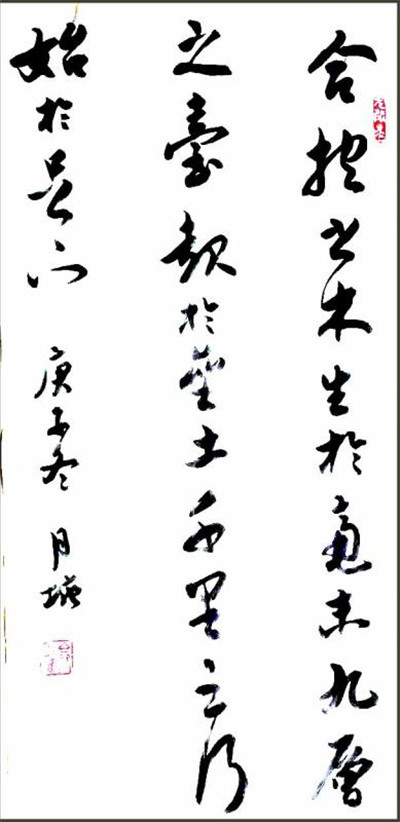 合抱之木生於毫末九層
之臺起於壘土千里之行
始於足下 庚子冬 月